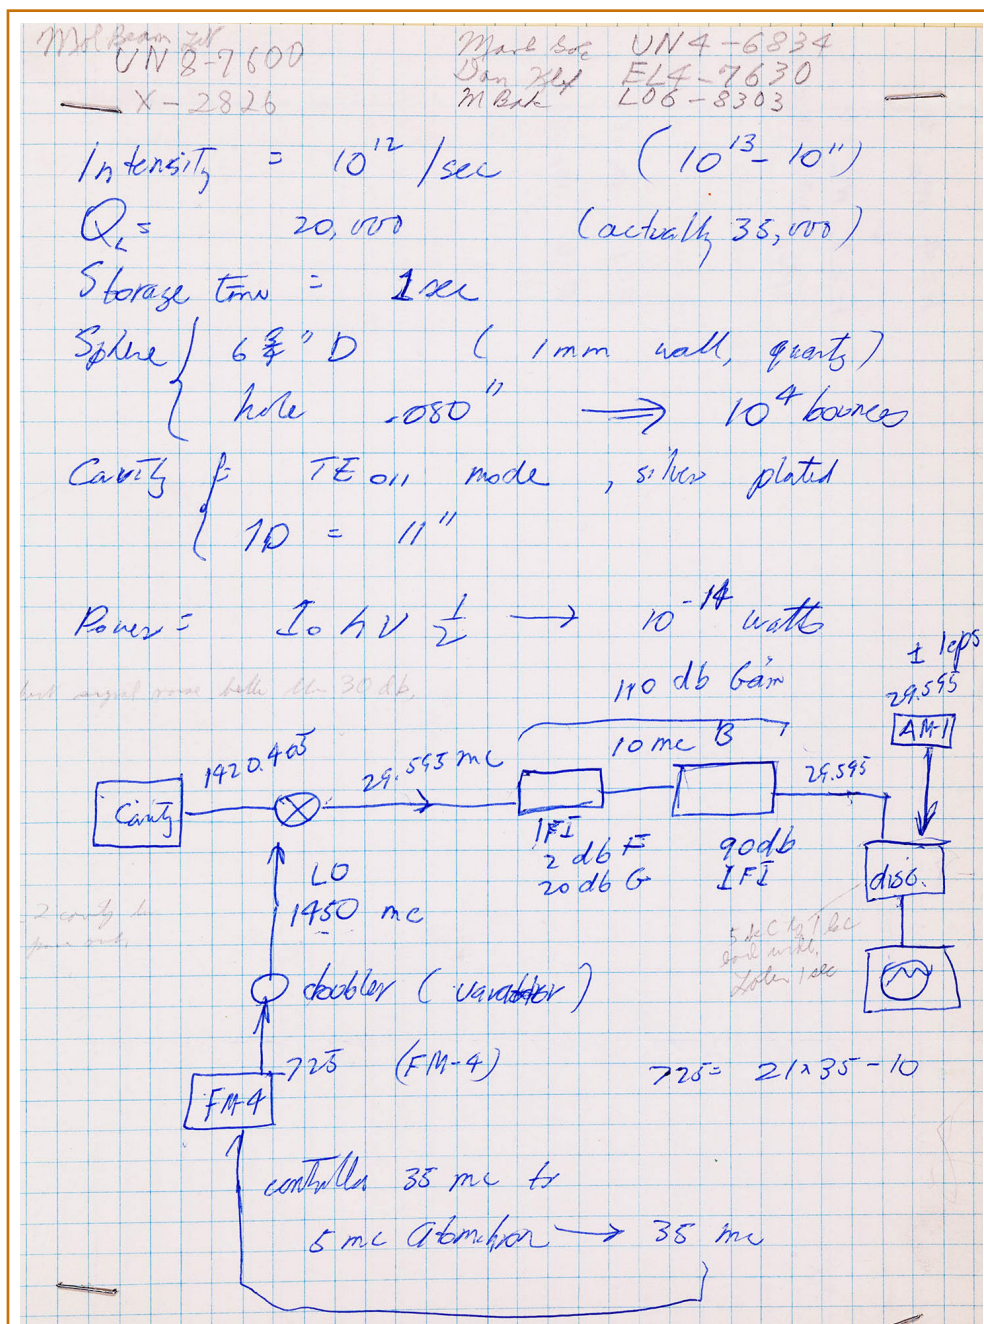 Mol Beam
UN 8-7600
X-2826
Mark UN4-6834
Dan EL4-7630
M Bak LO6-8303
Intensity = 10^12 /sec (10^13 - 10^11)
Q_L = 20,000 (actually 35,000)
Storage time = 1 sec
Sphere { 6 3/4" D (1 mm wall, quartz)
hole .080" ⟹ 10^4 bounces
Cavity { TE 011 mode, silver plated
ID = 11"
Power = I₀ h ν 1/2 → 10^-14 watts
signal noise better than 30 db.
110 db Gain
10 mc B
± 1cps
29.595
AM-1
Cavity
1420.405
29.595 mc
29.595
IFI
2 db F
20 db G
90 db
IFI
disc.
LO
1450 mc
2 cavity
5 sec
Later 1 sec
doubler (varactor)
725 (FM-4)
725 = 21 x 35 - 10
FM-4
controlled 35 mc to
5 mc Atomichron → 35 mc